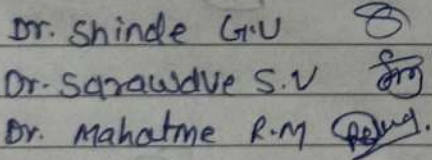 Dr. Shinde G.U
Dr. Sarawdve S.V
Dr. Mahatme R.M